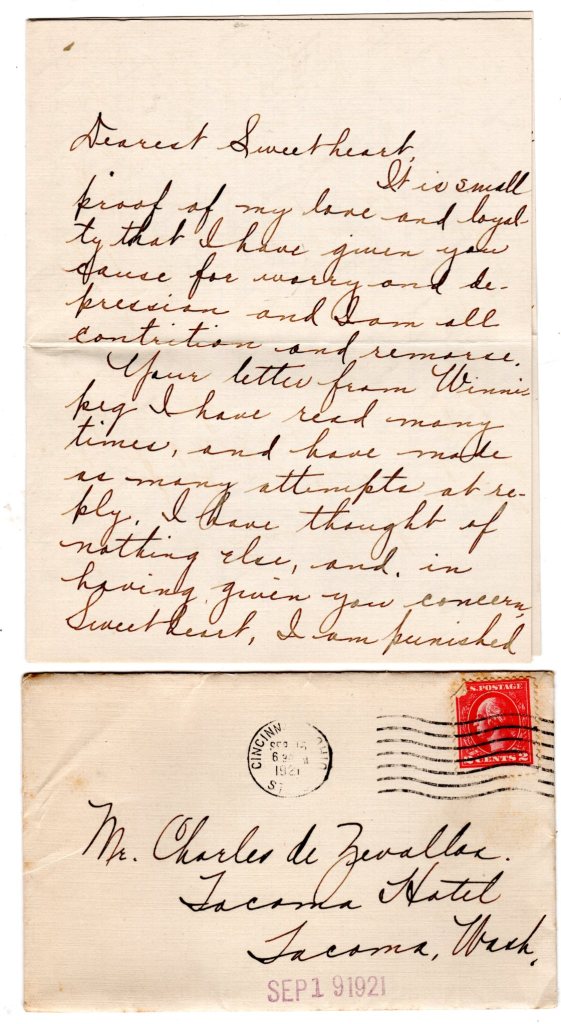 Dearest Sweetheart,
It is small
proof of my love and loyal-
ty that I have given you
cause for worry and de-
pression and I am all
contrition and remorse.
Your letter from Winni-
peg I have read many
times, and have made
as many attempts at re-
ply. I have thought of
nothing else, and, in
having given you concern,
Sweetheart, I am punished
CINCINN OHIO
SEP
6
1921
ST
S. POSTAGE
CENTS 2
Mr. Charles de Zevallos.
Tacoma Hotel
Tacoma, Wash.
SEP 19 1921